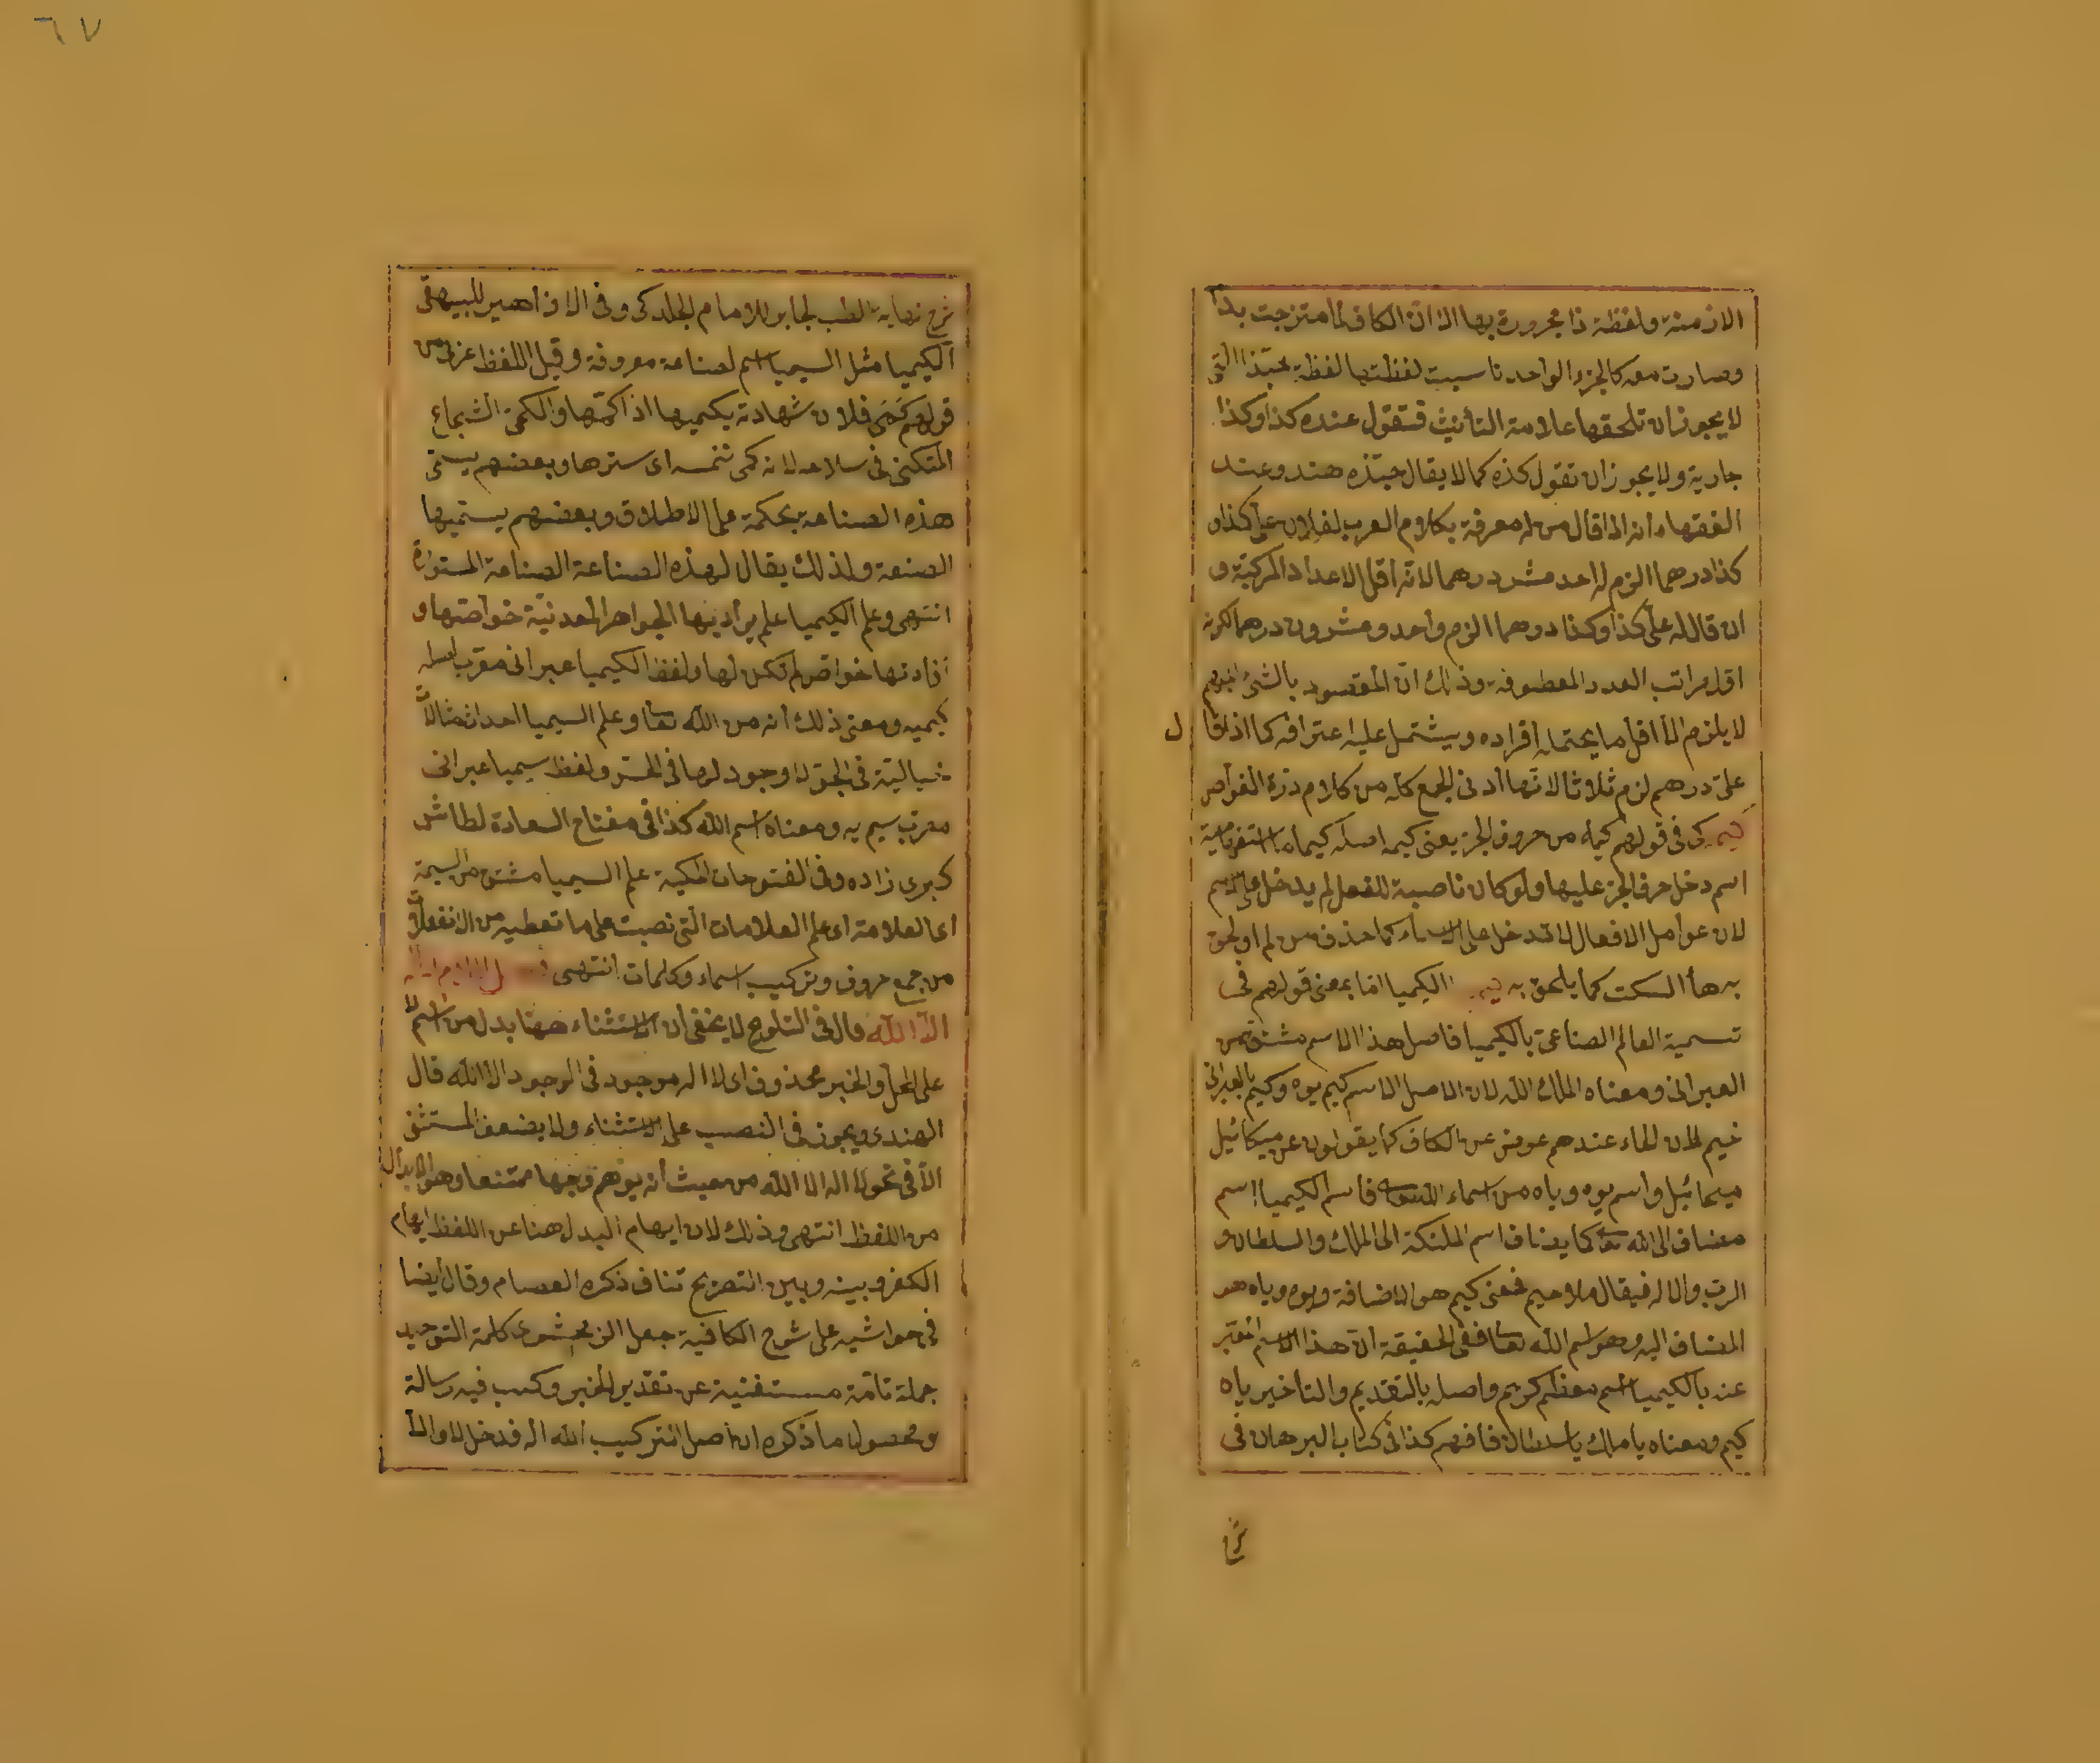 الازمنة ولفظة ذا مجرورة بها الا ان الكاف لما متزجت بذا
وصارت معه كالجزء الواحد ناسبت لفظتها لفظة حبّذا التى
لا يجوز ان تلحقها علامة التأنيث فتقول عنده كذا وكذا
جارية ولا يجوز ان تقول كذه كما لا يقال حبّذه هند وعند
الفقهاء أنه اذا قال من له معرفة بكلام العرب لفلان علىّ كذا
كذا درهما الزم له احد عشر درهما لانّه اقل الاعداد المركبّة و
ان قال له علىّ كذا وكذا درهما الزم واحد وعشرون درهما لكونه
اقل مراتب العدد المعطوفة وذلك انّ المقصود بالشئ المبهم
لا يلزم الا أقل ما يحتمله اقراره ويشتمل عليه اعترافه كما اذا قا ل
علىّ درهم لزم ثلاثا لانّها أدنى الجمع كله من كلام درة الغواص
كيم كى فى قولهم كيمه من حروف الجرّ يعنى كيمه اصله كيماه الاستفهامية
اسم دخل حرف الجرّ عليها ولو كان ناصبة للفعل لم يدخل على الاسم
لان عوامل الافعال لا تدخل على الاسماء كما حذف من لم او لحق
به هأ السكت كما يلحق به الكيميا امّا بمعنى قولهم فى
تسمية العالم الصناعى بالكيميا فاصل هذا الاسم مشتق من
العبرانى ومعناه الملك الله لان الاصل الاسم كيم يوه وكيم بالعبرانى
خيم لان الخاء عندهم عوض عن الكاف كما يقولون عن ميكائيل
ميخائيل واسم يوه وياه من اسماء الله تعالى فاسم الكيميا اسم
مضاف الى الله تعا كما يضاف اسم الملئكة الى الملك والسلطان و
الربّ والاله فيقال ملاحيم فمعنى كيم هو الاضافة ويوه وياه هو
المضاف اليه وهو اسم الله تعا ففى الحقيقة انّ هذا الاسم المعبّر
عنه بالكيميا اسم معظم كريم واصله بالتقديم والتاخير ياه
كيم ومعناه يا ملك يا سلطان فافهم كذا فى كتاب البرهان فى
شرح
٦٧
شرح نهاية الطلب لجابر للامام الجلدكى وفى الازاهير للبيهقى
الكيميا مثل السيميا اسم لصناعة معروفة وقيل اللفظ عربى من
قولهم كمى فلان شهادته يكميها اذا كتمها والكمىّ الشجاع
المتكمّى فى سلاحه لانه كمى نفسه اى سترها وبعضهم يسمّى
هذه الصناعة بحكمة على الاطلاق وبعضهم يسمّيها
الصنعة ولذلك يقال لهذه الصناعة الصناعة المستورة
انتهى وعلم الكيميا علم يراد بها الجواهر المعدنيّة خواصّها و
افادتها خواص لم تكن لها ولفظ الكيميا عبرانى معرّب اصله
كيميه ومعنى ذلك أنه من الله تعا وعلم السيميا احداث مثالات
خياليّة فى الجوّ لا وجود لها فى الحسّ ولفظ سيميا عبرانى
معرّب سيم يه ومعناه اسم الله كذا فى مفتاح السعادة لطاش
كبرى زاده وفى الفتوحات المكية علم السيميا مشتق من السيمة
اى العلامة اى علم العلامات التى نصبت على ما تعطيه من الانفعالات
من جمع حروف وتركيب اسماء وكلمات انتهى
الا الله قال فى التلويح لا يخفى ان الاستثناء ههنا بدل من اسم لا
على المحلّ والخبر محذوف اى لا اله موجود فى الوجود الا الله قال
الهندى ويجوز فى النصب على الاستثناء ولا يضعف المستثنى
الاّ فى نحو لا اله الا الله من حيث أنه يوهم وجها ممتنعا وهو الابدال
من اللفظ انتهى وذلك لان ايهام البدل هنا عن اللفظ ايهام
الكفر وبينه وبين التصريح تناف ذكره العصام وقال أيضا
فى حواشيه على شرح الكافية جعل الزمخشرى كلمة التوحيد
جملة تامّة مستغنية عن تقدير الخبر وكتب فيه رسالة
ومحصول ما ذكره ان اصل التركيب الله اله فدخل لا والاّ